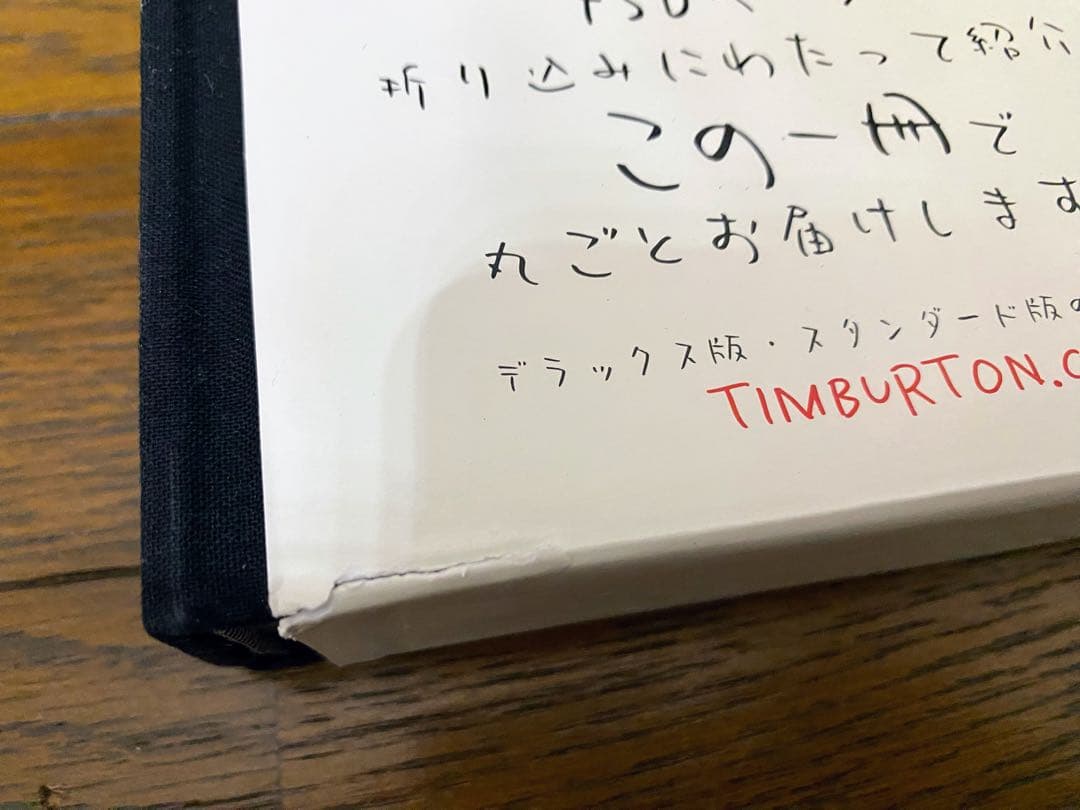 折り込みにわたって紹介
この一冊で
丸ごとお届けします
デラックス版・スタンダード版の
TIMBURTON.C